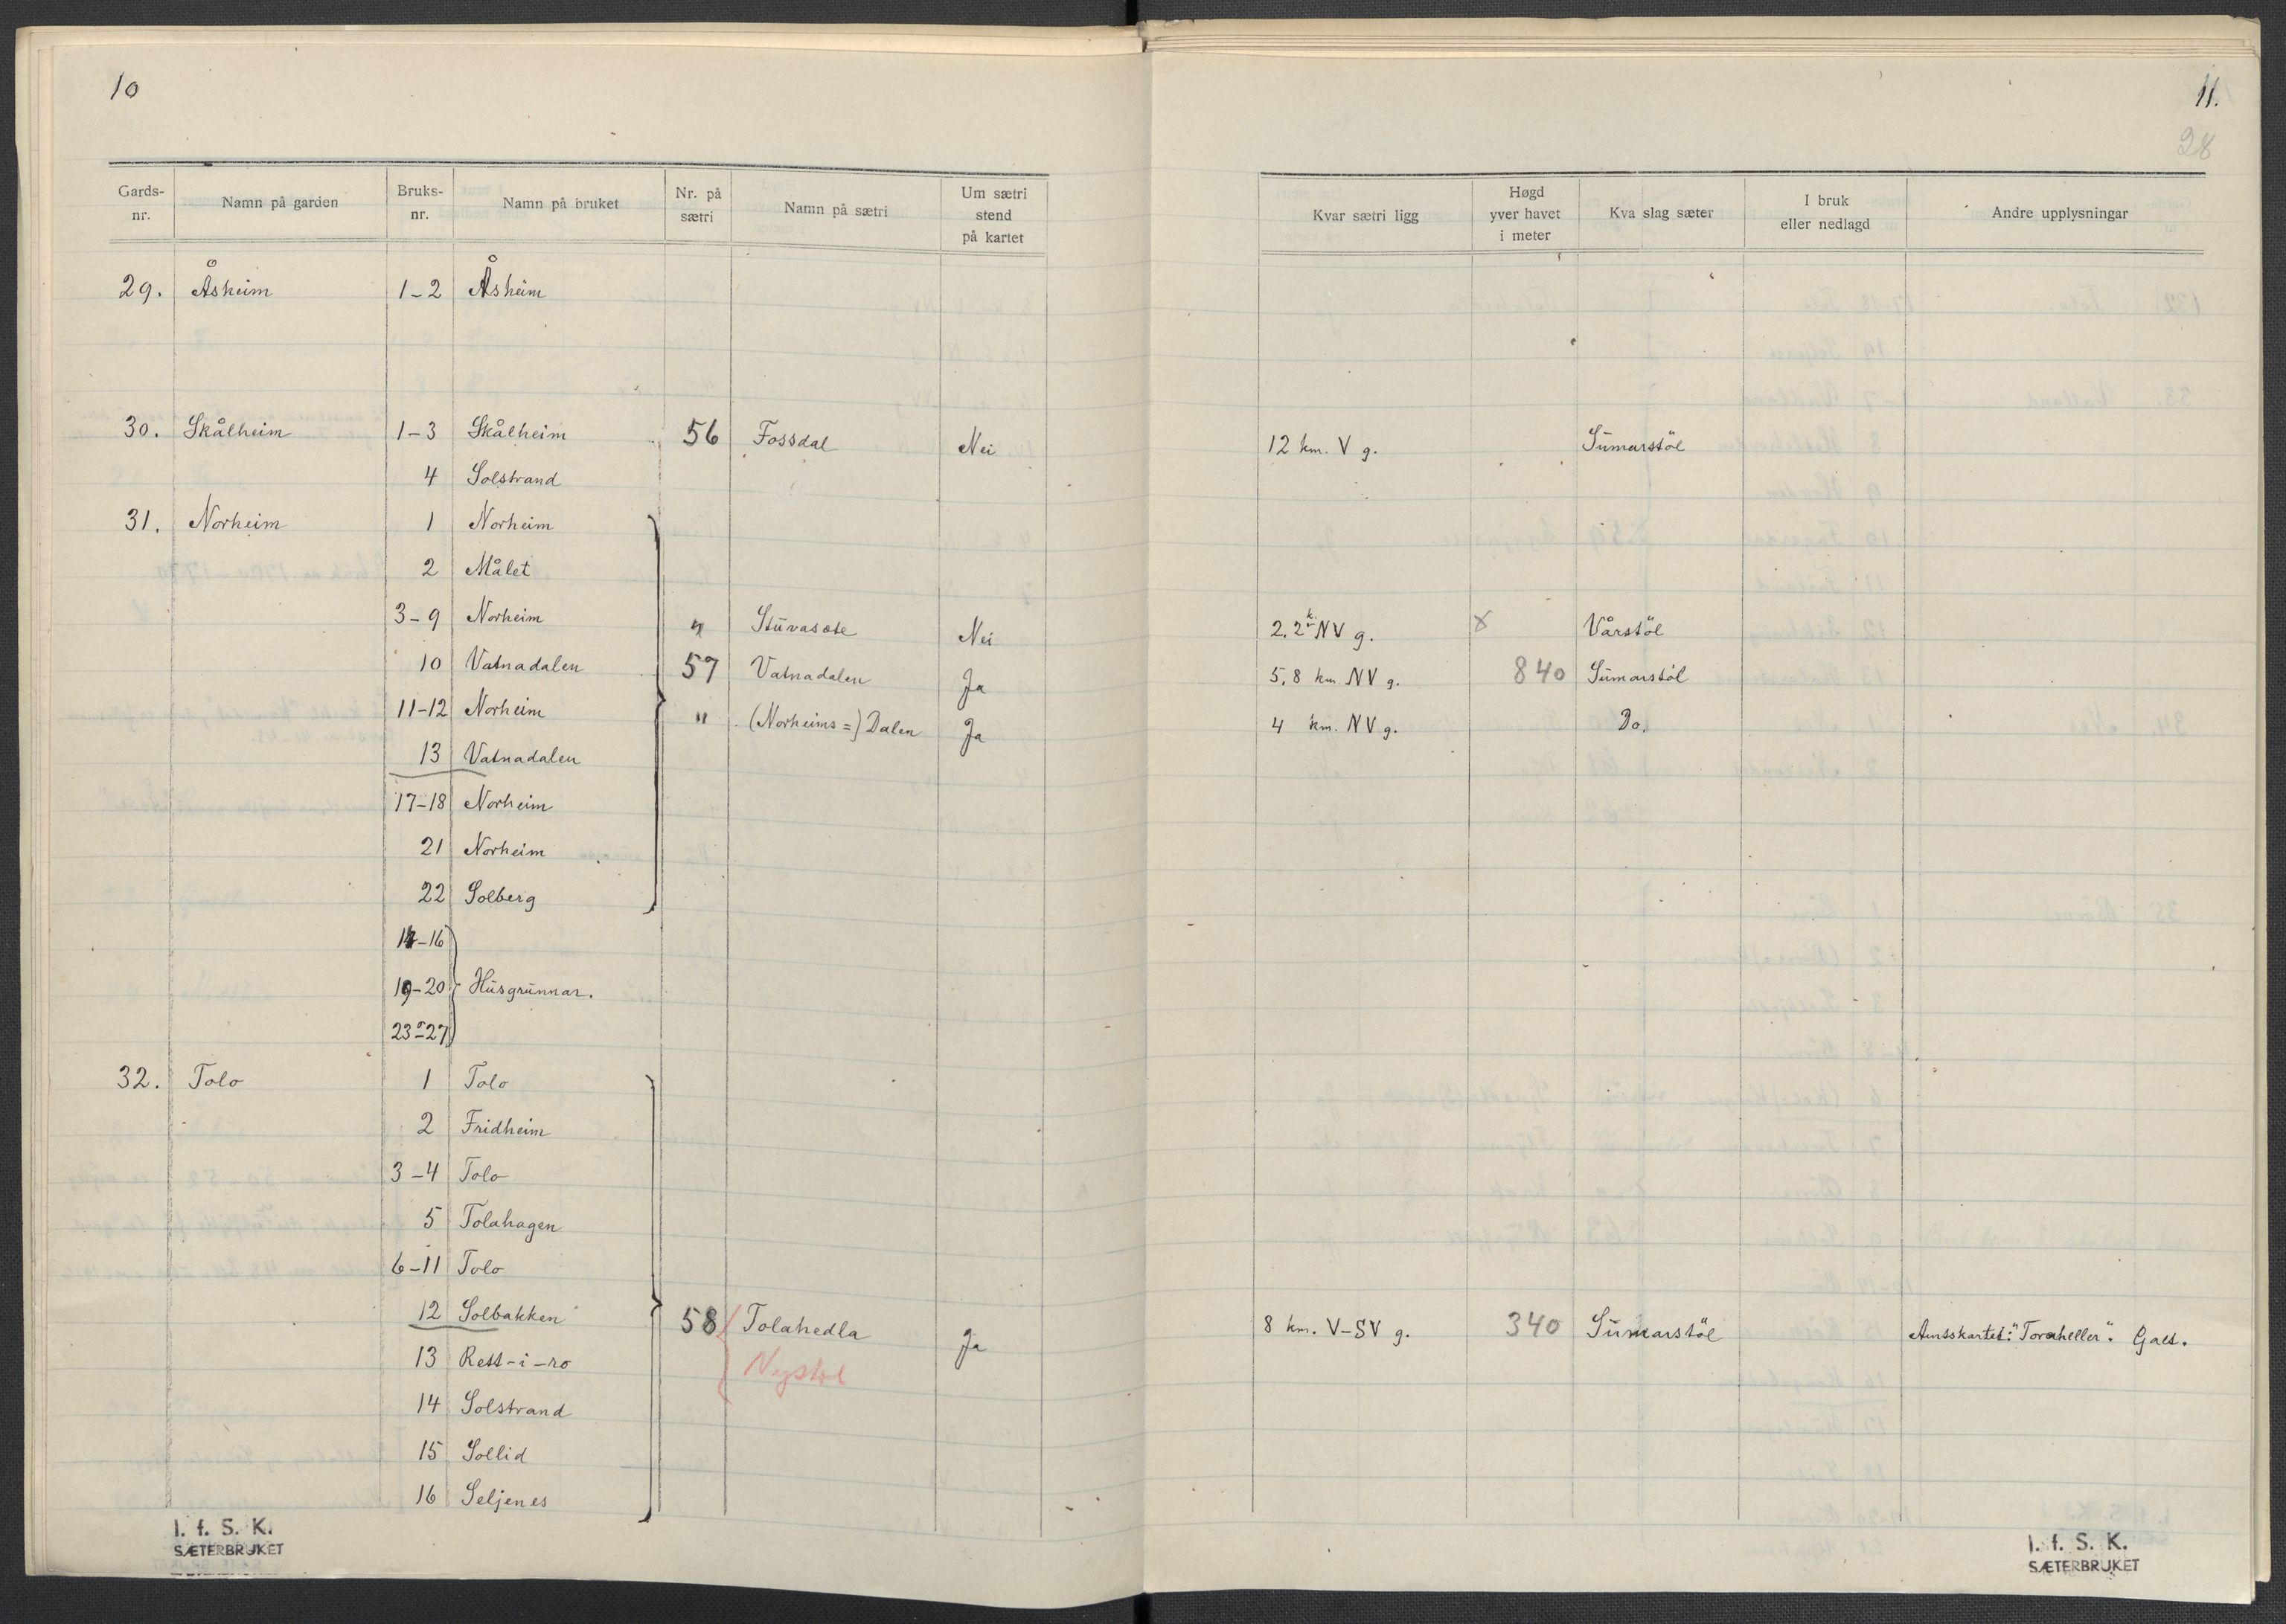 10
11.
28
Gards-nr. Namn på garden Bruks-nr. Namn på bruket Nr. på sætri Namn på sætri Um sætri stend på kartet Kvar sætri ligg Høgd yver havet i meter Kva slag sæter I bruk eller nedlagd Andre upplysningar
29. Åsheim 1-2 Åsheim
30. Skålheim 1-3 Skålheim 56 Fossdal Nei 12 km. V g. Sumarstöl
4 Solstrand
31. Norheim 1 Norheim
2 Målet
3-9 Norheim " Stuvasæte Nei 2,2 k. NV g. x Vårstöl
10 Vatnadalen 57 Vatnadalen Ja 5,8 km NV g. 840 Sumarstöl
11-12 Norheim " (Norheims=) Dalen Ja 4 km. NV g. Do.
13 Vatnadalen
17-18 Norheim
21 Norheim
22 Solberg
14-16
19-20 Husgrunnar.
23-27
32. Tolo 1 Tolo
2 Fridheim
3-4 Tolo
5 Tolahagen
6-11 Tolo
12 Solbakken 58 Tolahedla Ja 8 km. V-SV g. 340 Sumarstöl Amtskartet: "Toraheller". Gale.
13 Rett-i-ro Nystøl
14 Solstrand
15 Sollid
16 Seljenes
I. f. S. K.
SÆTERBRUKET
I. f. S. K.
SÆTERBRUKET